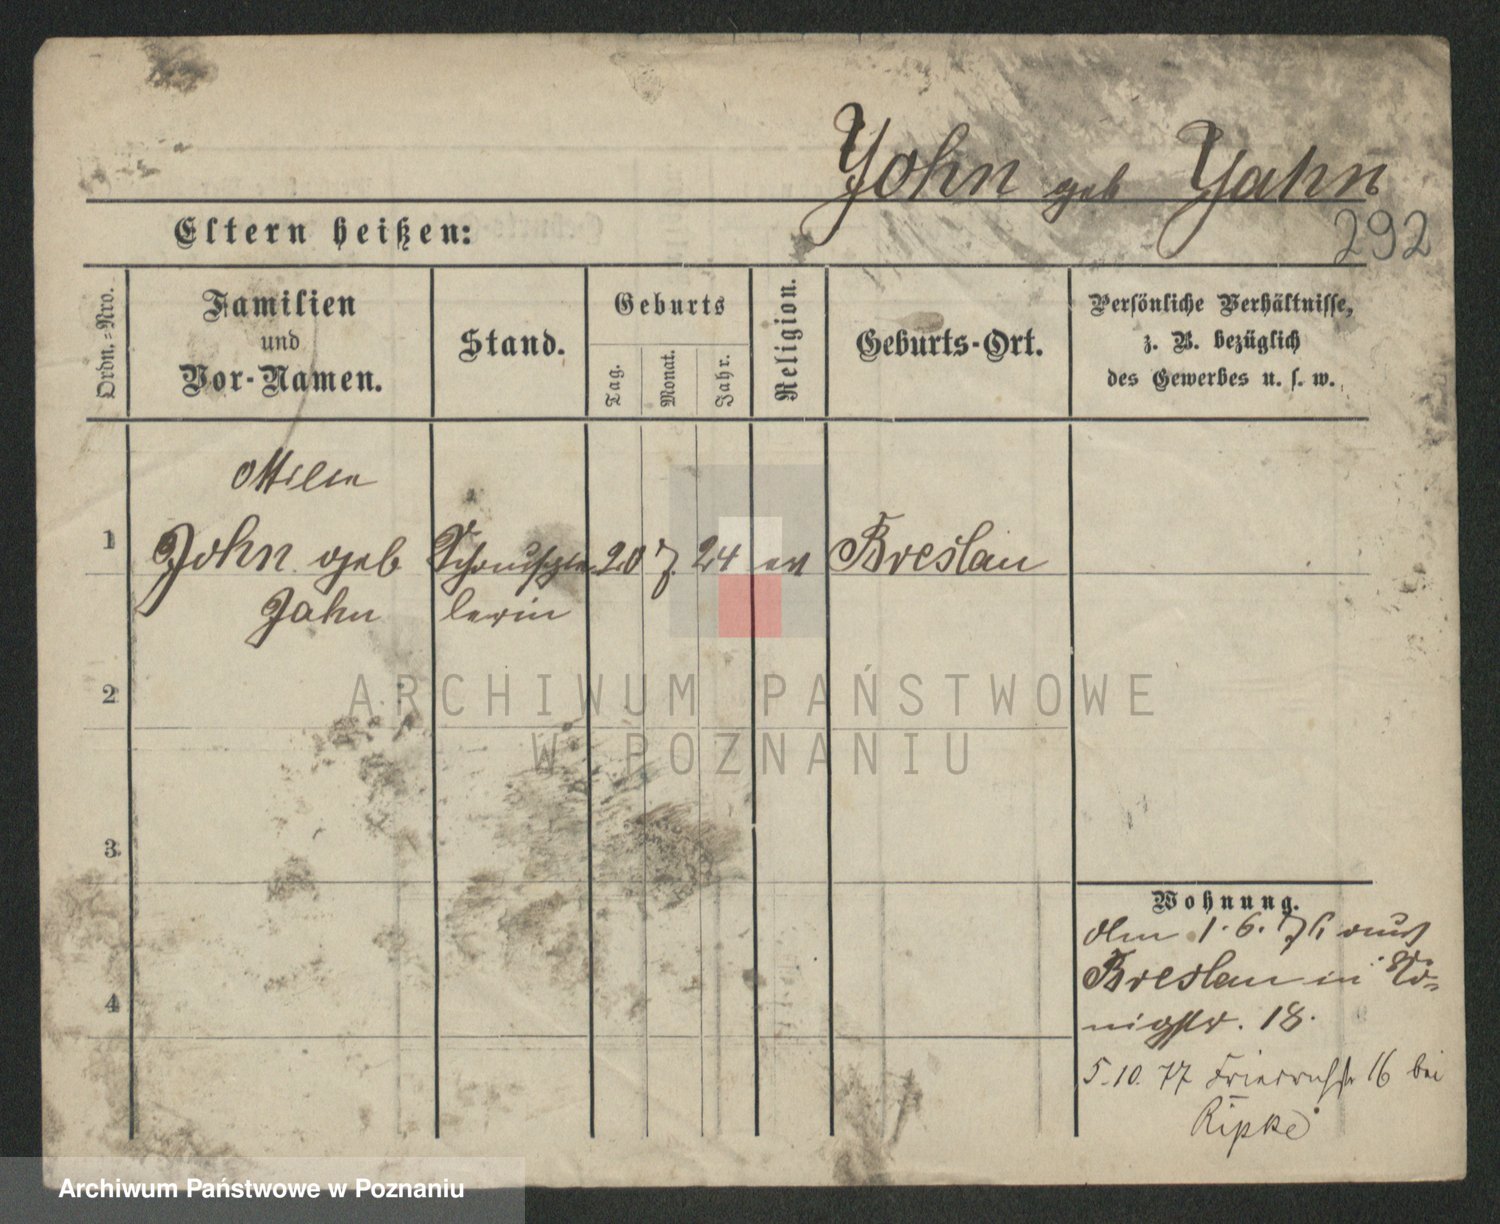 John geb Jahn
292
Eltern heißen:
Ordn.-Nro.
Familien
und
Vor-Namen.
Stand.
Geburts
Tag.
Monat.
Jahr.
Religion.
Geburts-Ort.
Persönliche Verhältnisse,
z. B. bezüglich
des Gewerbes u. s. w.
Ottilie
1 John geb Schauspie 20 7 24 ev Breslau
Jahn lerin
2
3
4
Wohnung.
den 1. 6. 76 aus
Breslau in Kö-
nigstr. 18.
5.10.77 Friedrichstr 16 bei
Ripke
ARCHIWUM PAŃSTWOWE
W POZNANIU
Archiwum Państwowe w Poznaniu